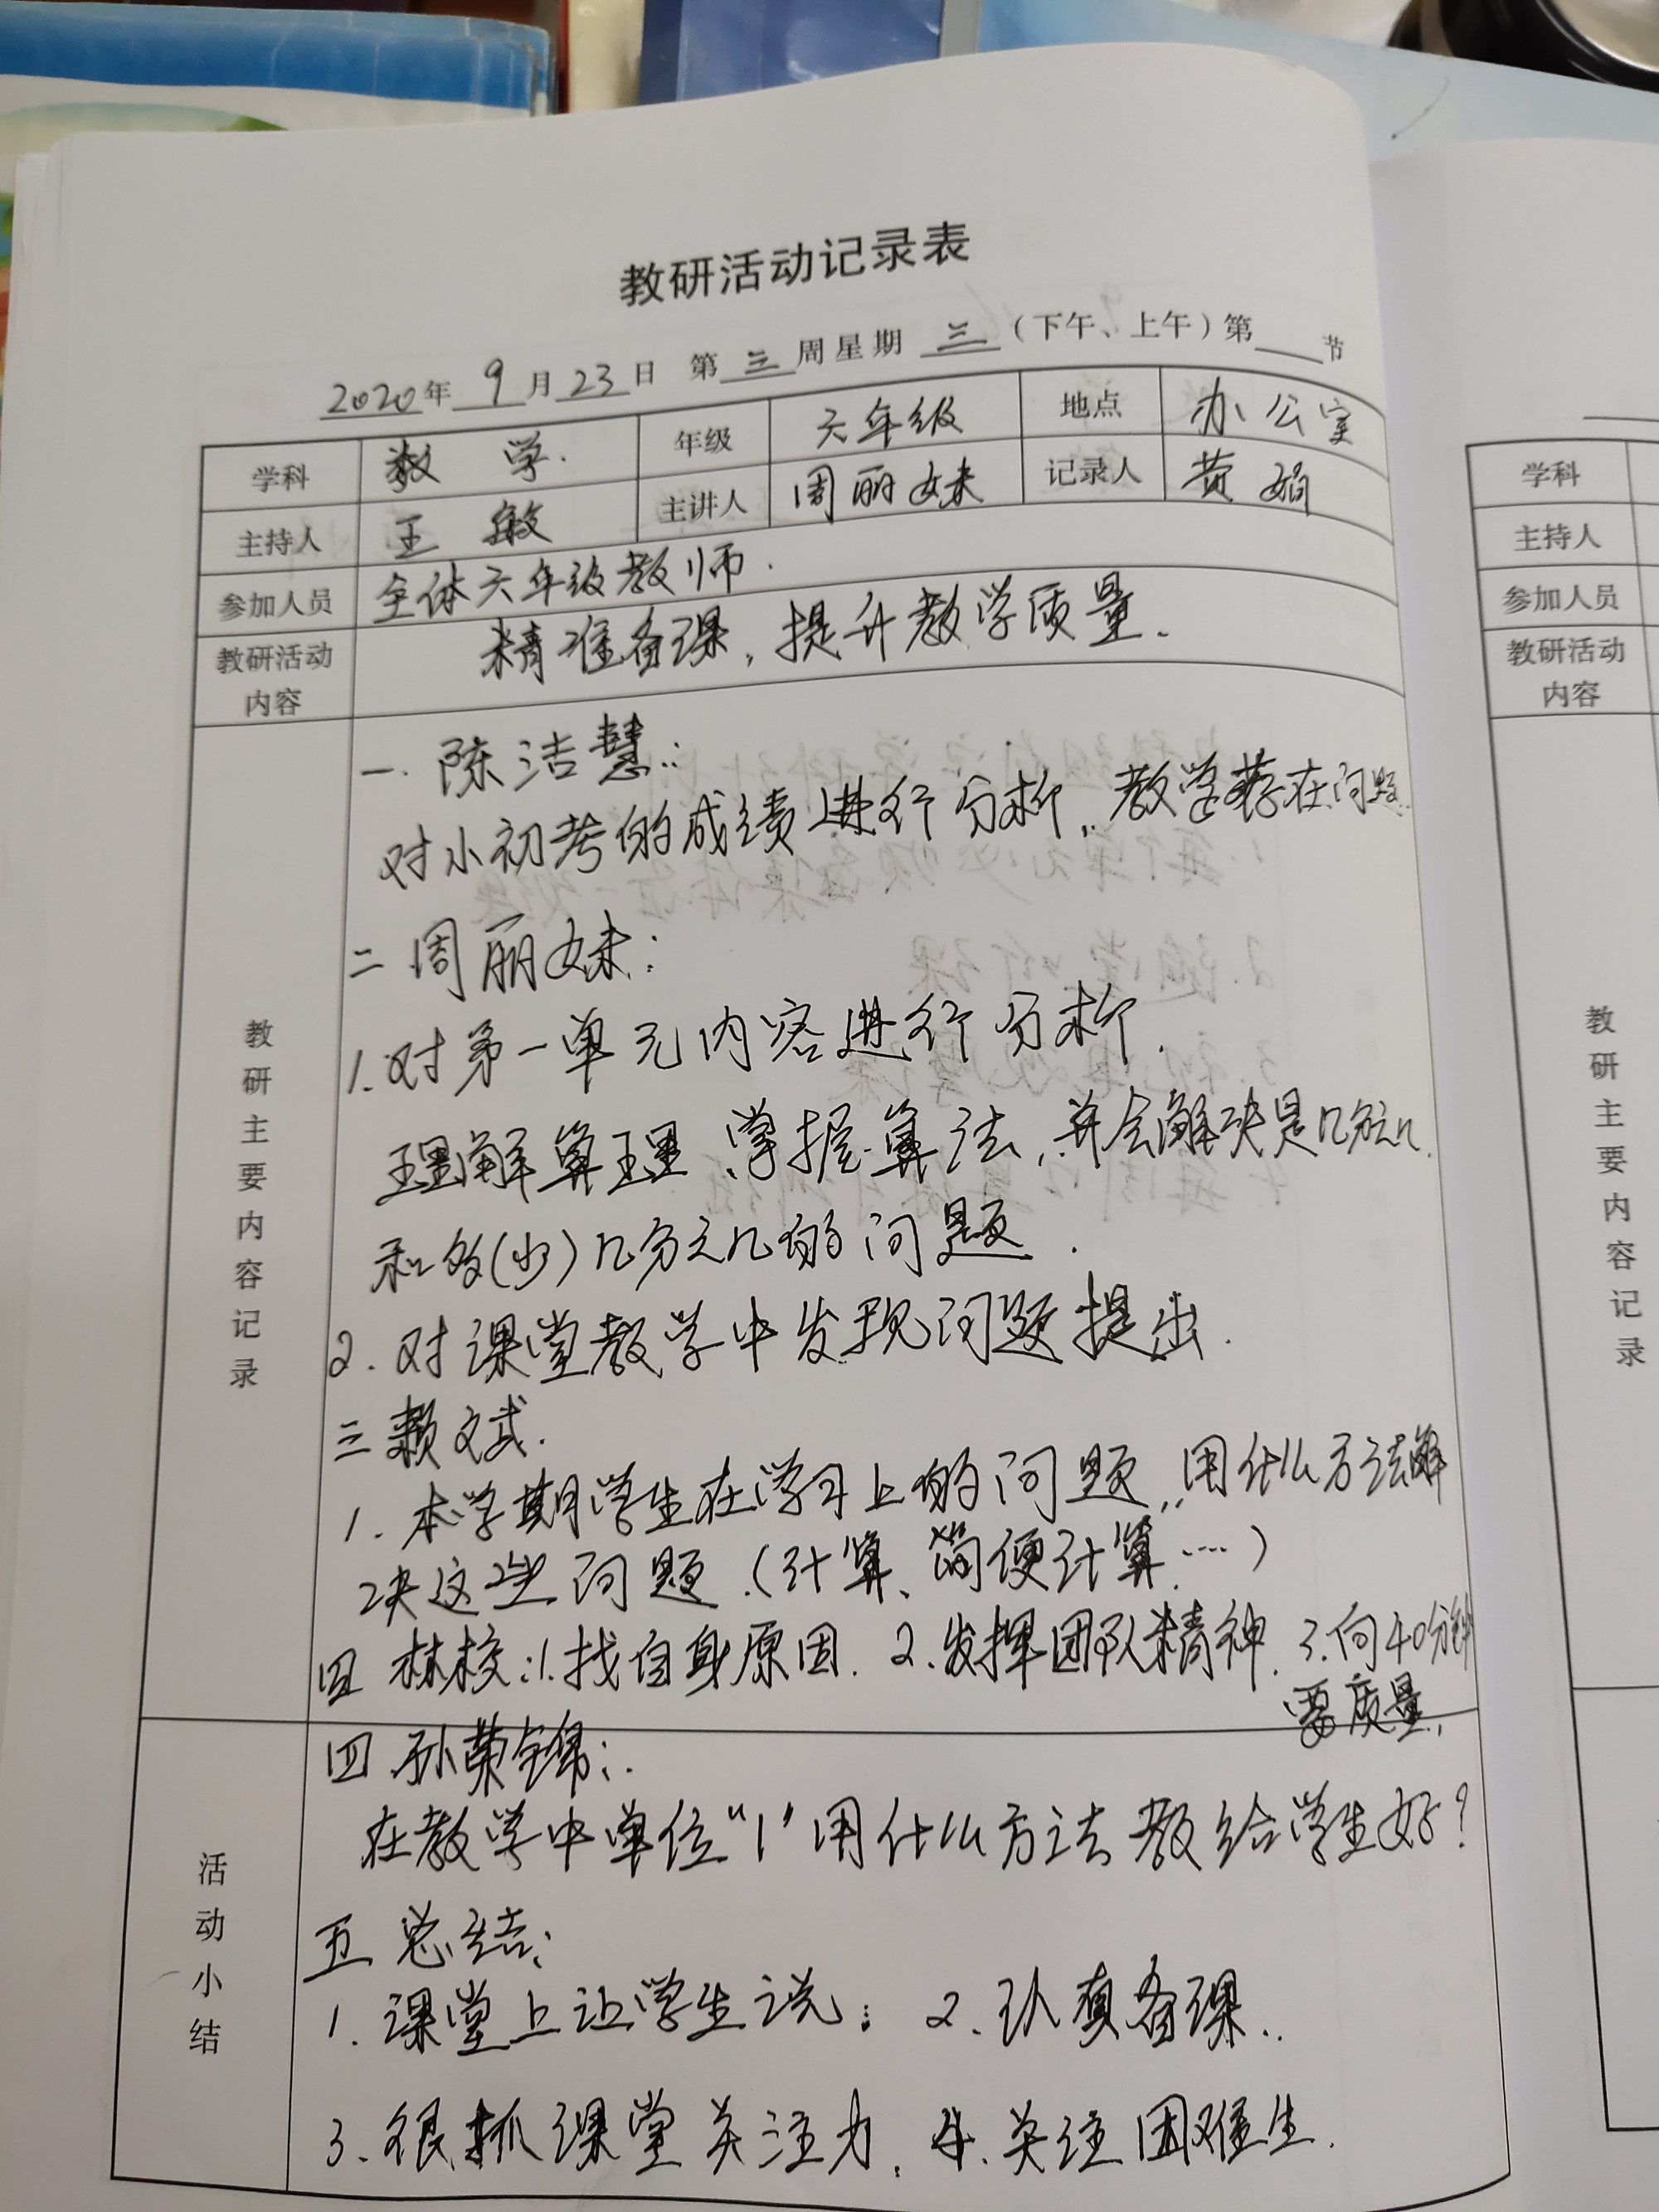 教研活动记录表
2020年 9 月 23 日 第 三 周星期 三 （下午、上午）第 节
学科 数 学. 年级 六年级 地点 办公室
主持人 王 敏 主讲人 周丽妹 记录人 黄娟
参加人员 全体六年级教师.
教研活动内容 精准备课，提升教学质量.
教研主要内容记录
一. 陈洁慧:
对小初考的成绩进行分析, 教学存在问题.
二 周丽妹:
1. 对第一单元内容进行分析.
理解算理、掌握算法, 并会解决是几分之几
和多(少)几分之几的问题.
2. 对课堂教学中发现问题提出.
三 赖文武.
1. 本学期学生在学习上的问题, 用什么方法解
决这些问题.(计算、简便计算....)
四 林校:1.找自身原因. 2.发挥团队精神. 3.向40分钟
要质量.
活动小结
四 孙荣锦:
在教学中单位“1”用什么方法教给学生好?
五 总结:
1. 课堂上让学生说; 2. 认真备课.
3. 狠抓课堂关注力, 4. 关注困难生.
学科
主持人
参加人员
教研活动内容
教研主要内容记录